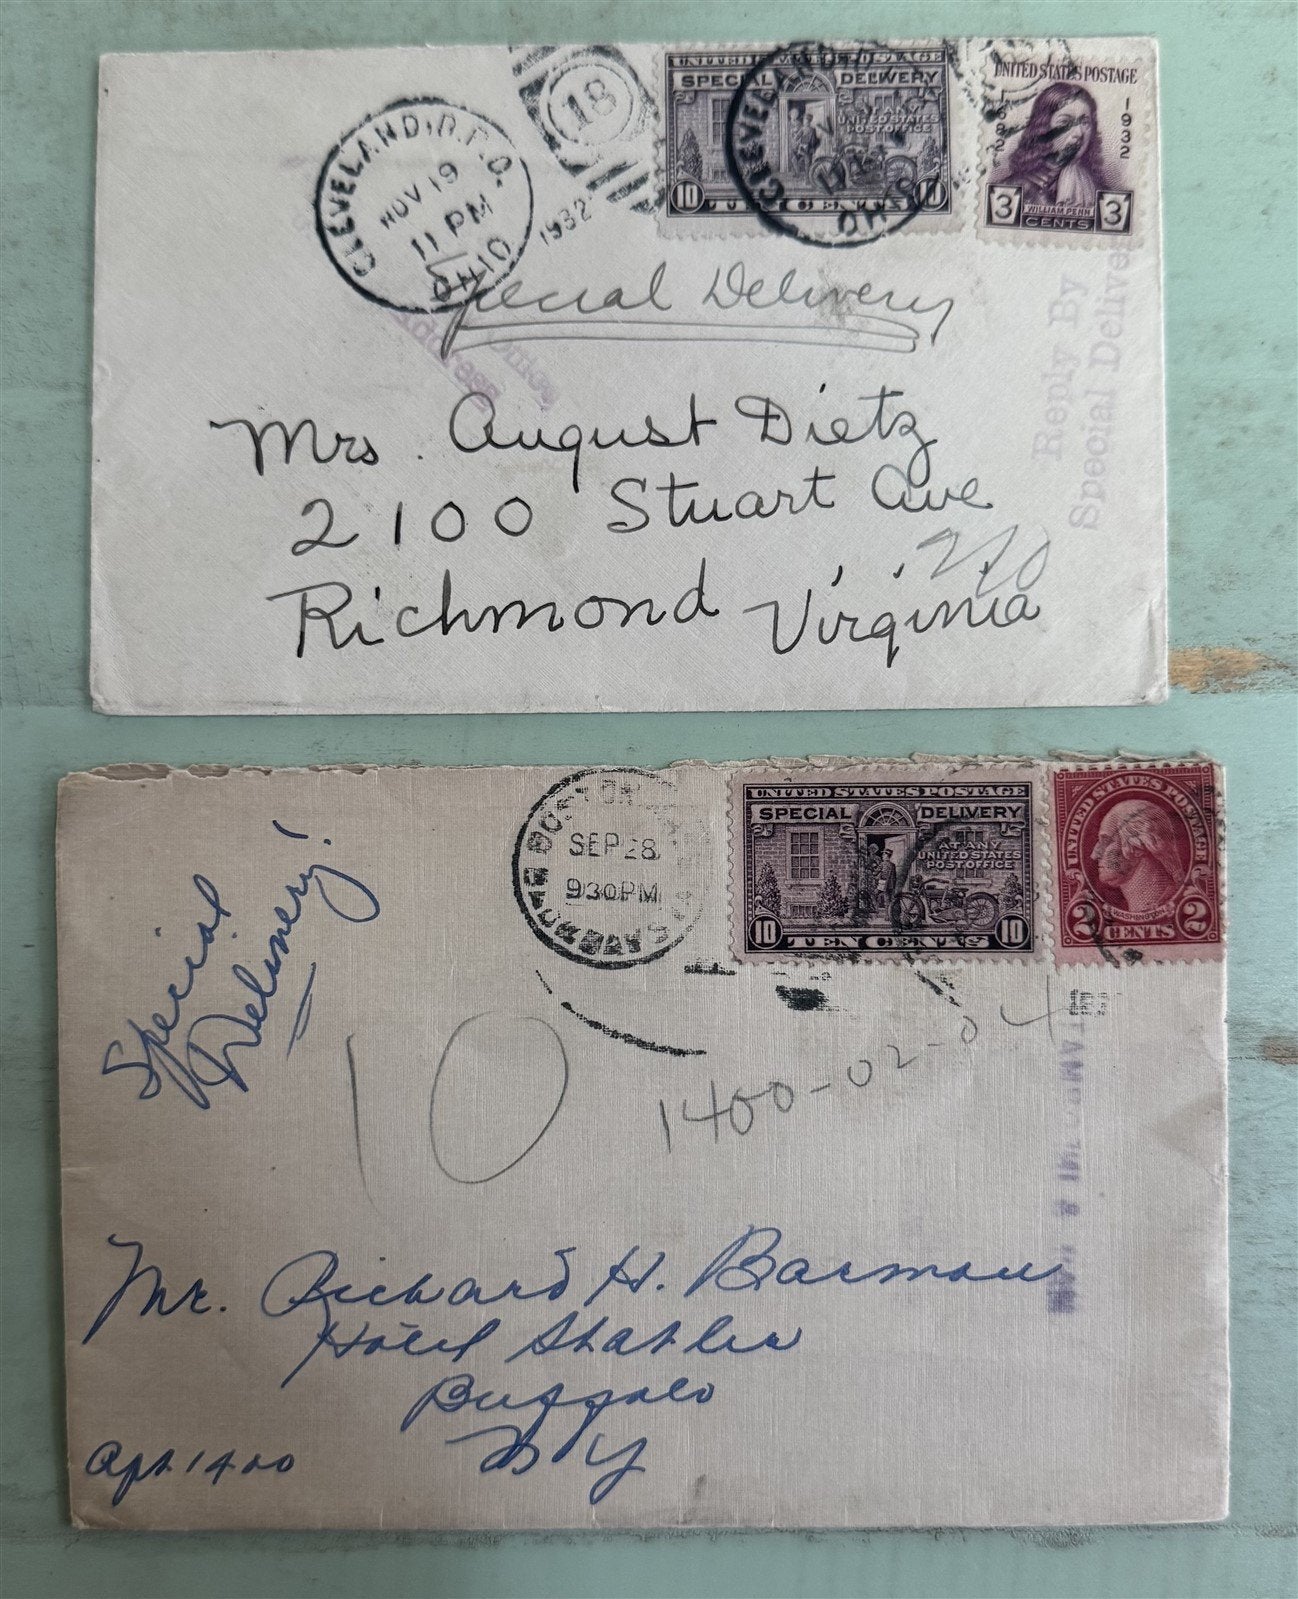 CLEVELAND, R.P.O.
NOV 19
11 PM
OHIO
1932
18
UNITED STATES POSTAGE
SPECIAL DELIVERY
AT ANY
UNITED STATES
POST OFFICE
10 TEN CENTS 10
CLEVELAND
OHIO
UNITED STATES POSTAGE
1682
1932
3 WILLIAM PENN 3
CENTS
Special Delivery
Reply By
Special Delivery
Mrs. August Dietz
2100 Stuart Ave
Richmond Virginia
BOSTON
SEP 28
930PM
UNITED STATES POSTAGE
SPECIAL DELIVERY
AT ANY
UNITED STATES
POST OFFICE
10 TEN CENTS 10
UNITED STATES POSTAGE
WASHINGTON
2 CENTS 2
Special
Delivery!
10
1400-02-04
Mr. Richard H. Barmon
Hotel Statler
Buffalo
N Y
Apt. 1400